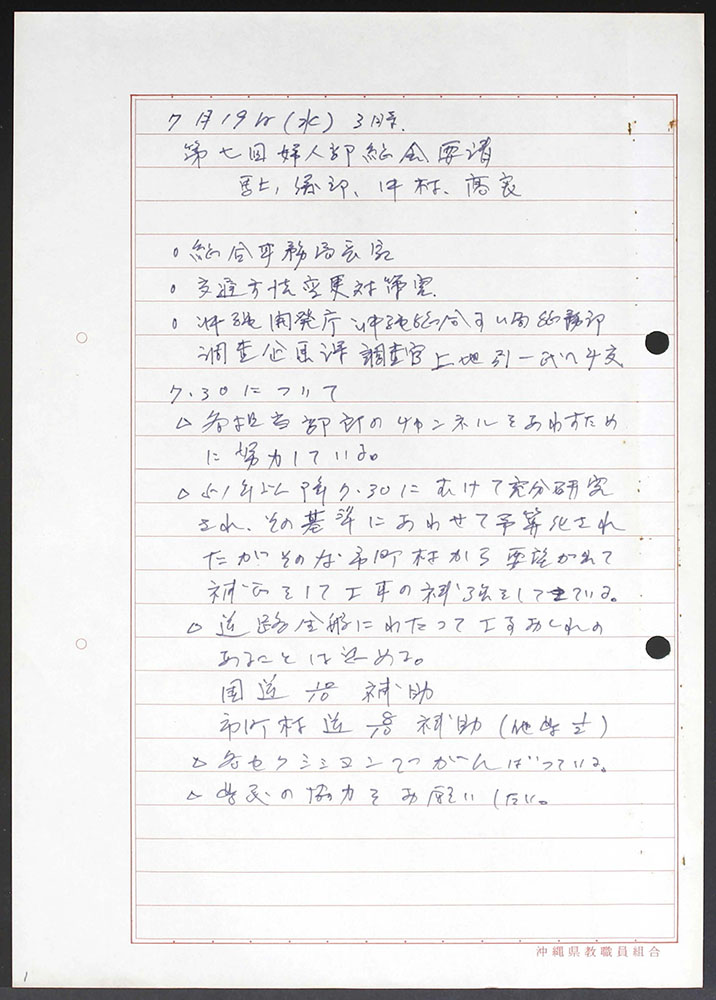 7月19日(水) 3時.
第七回婦人部総会要請
上, 、仲村、高良
○ 総合事務局長室
○ 交通方法変更対策室
○ 沖縄開発庁沖縄総合事ム局総務部
調査企画課 調査官 上地 一氏へ手交
7.30について
△ 各担当部所のチャンネルをあわすため
に努力している。
△ 51年以降7.30にむけて充分研究
され、その基準にあわせて予算化され
たがその後市町村から要望がきて
補正をして工事の補強をしてきている。
△ 道路全般にわたって工事おくれの
あることは認める。
国道 10/10 補助
市町村道 8/10 補助
△ 各セクションでがんばっている。
△ 県民の協力をお願いしたい。
沖縄県教職員組合
1